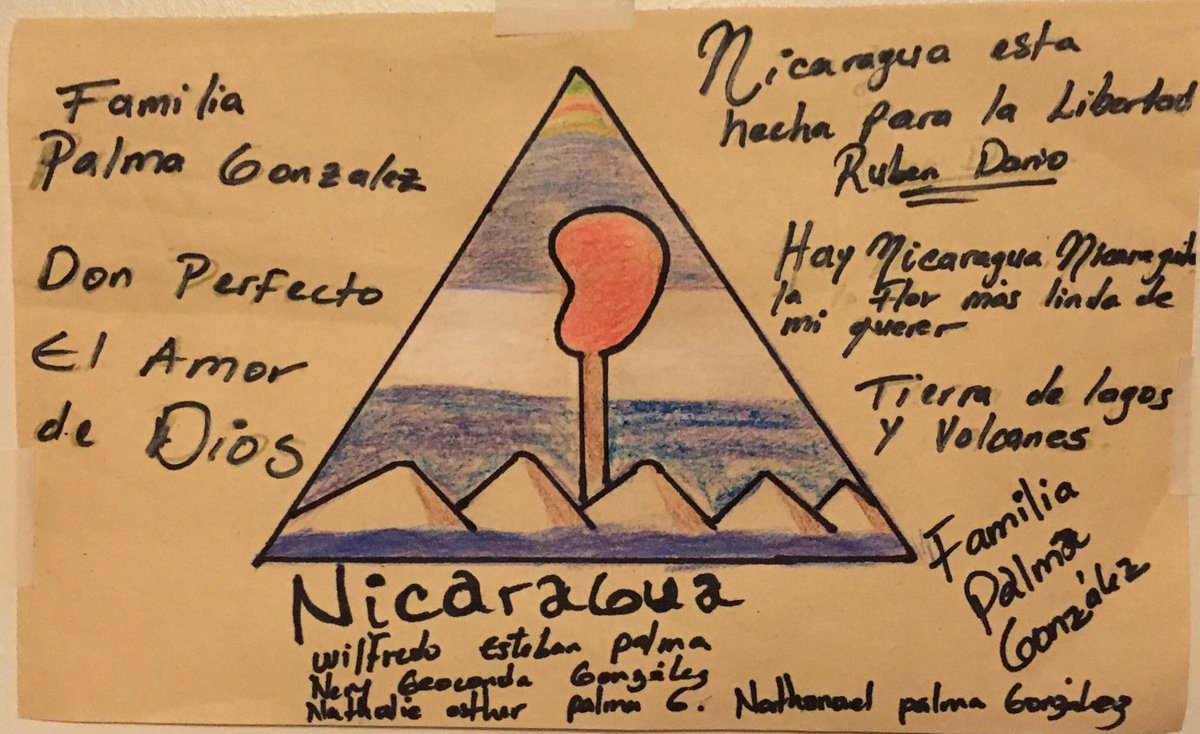 Familia
Palma Gonzalez
Don Perfecto
El Amor
de Dios
Nicaragua esta
hecha para la Libertad
Ruben Dario
Hay Nicaragua Nicaraguita
la Flor más linda de
mi querer
Tierra de lagos
y Volcanes
Familia
Palma
González
Nicaragua
Wilfredo Esteban palma
Nery Geoconda González
Nathalie esther palma G. Nathanael palma González